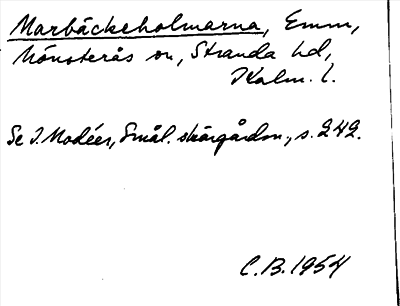 Marbäckeholmarna, Emm,
Mönsterås sn, Stranda hd,
Kalm. l.
Se I. Modéer, Smål. skärgårdsn., s. 242.
C.B. 1954